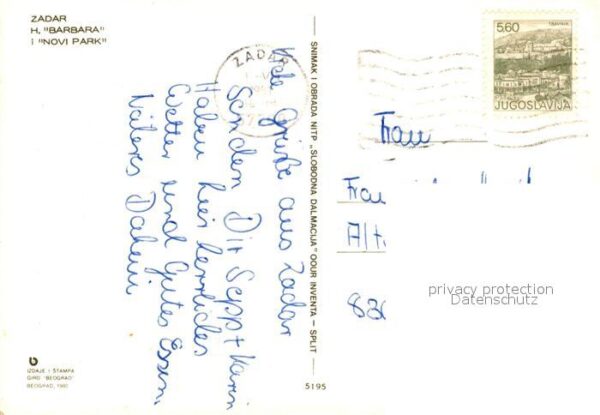 ZADAR
H. "BARBARA"
i "NOVI PARK"
Viele Grüße aus Zadar
Senden Dir Sepp + Karin
Haben hier herrliches
Wetter und Gutes Essen.
Näheres
Daheim
IZDAJE I ŠTAMPA
GIRO "BEOGRAD"
BEOGRAD, 1980
SNIMAK I OBRADA NITP „SLOBODNA DALMACIJA" OOUR INVENTA – SPLIT
5195
ZADAR
5.60
TRAVNIK
JUGOSLAVIJA
Frau
Frau
Alt.
privacy protection
Datenschutz